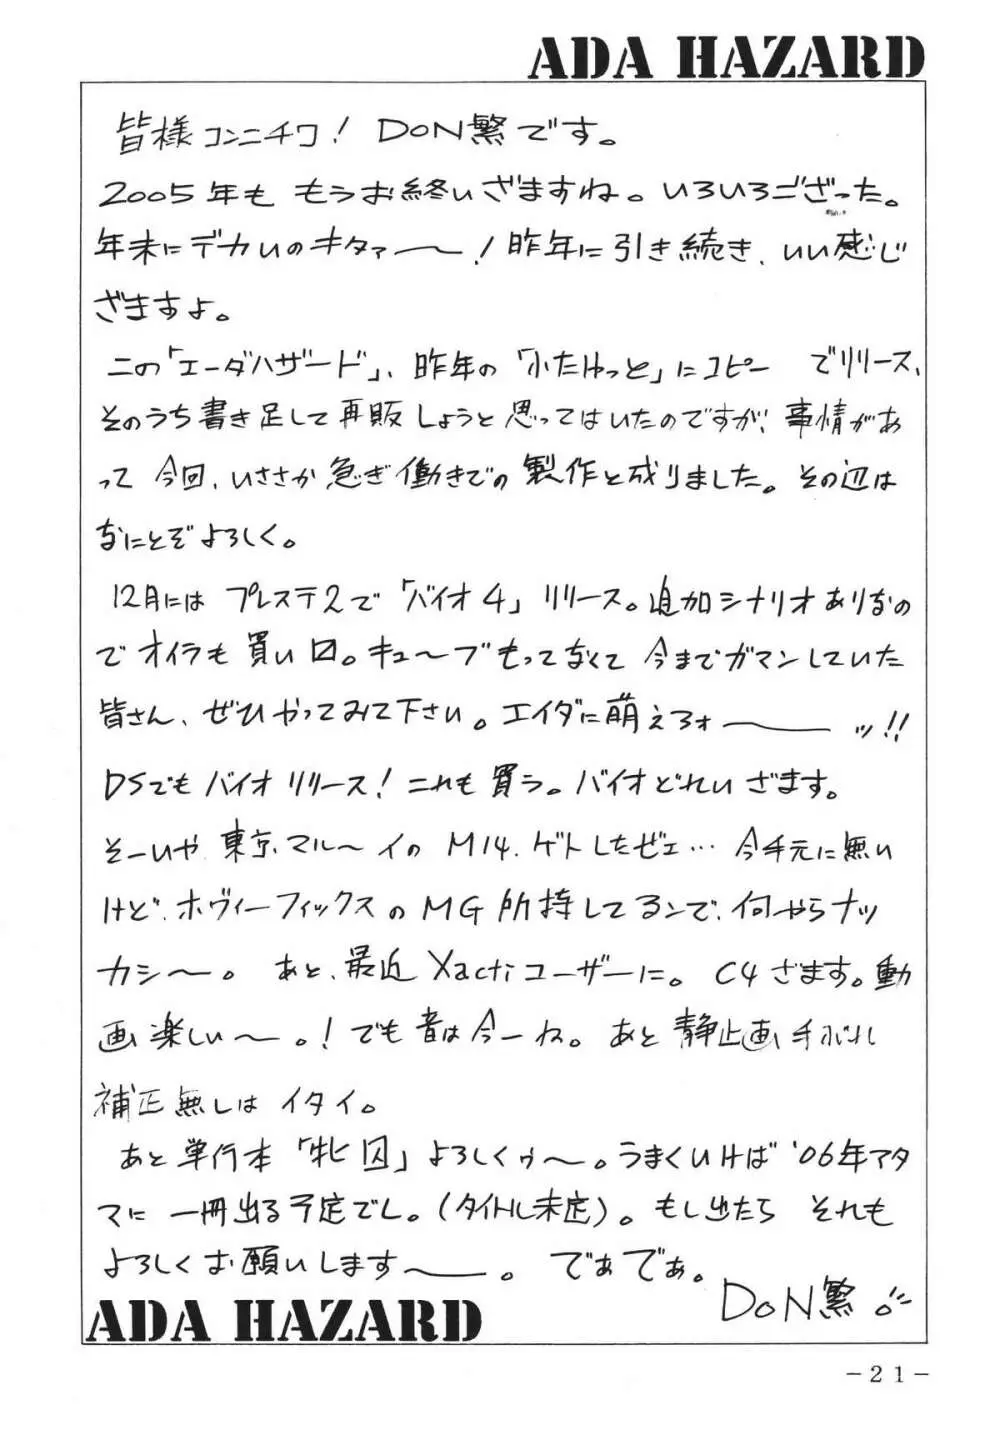 ADA HAZARD
皆様コンニチワ！ DON繁です。
2005年も もうお終いざますね。いろいろござった。
年末にデカいのキタァ〜！昨年に引き続き、いい感じ
ざますよ。
この「エーダハザード」、昨年の「ふたけっと」にコピー でリリース、
そのうち書き足して再販しようと思ってはいたのですが、事情があ
って今回、いささか急ぎ働きでの製作と成りました。その辺は
なにとぞよろしく。
12月にはプレステ2で「バイオ4」リリース。追加シナリオありなの
でオイラも買い口。キュ〜ブもってなくて今までガマンしていた
皆さん、ぜひやってみて下さい。エイダに萌えろォ――ッ!!
DSでもバイオリリース！これも買う。バイオどれいざます。
そーいや、東京マル〜イのM14、ゲトしたぜェ… 今手元に無い
けど、ホヴィーフィックスのMG所持してるンで、何やらナッ
カシ〜。 あと、最近Xactiユーザーに。C4ざます。動
画楽しい〜。！でも音は今一ね。あと静止画手ぶれ
補正無しはイタイ。
あと単行本「牝囚」よろしくゥ〜。うまくいけば'06年アタ
マに一冊出る予定でし。（タイトル未定）。もし出たら それも
よろしくお願いします〜。 でぁでぁ。
DON繁
ADA HAZARD
－21－